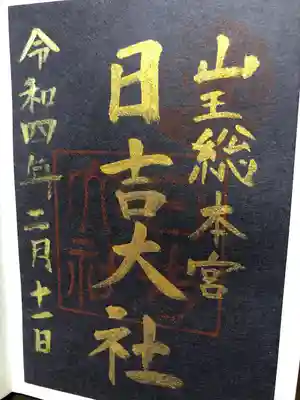 山王総本宮
日吉大社
令和四年二月十一日